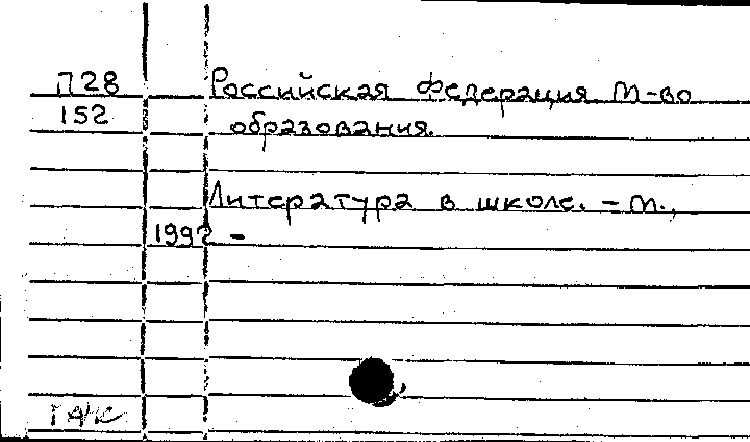 П28 Российская Федерация М-во
152 образования.
Литература в школе. – М.,
1992 –